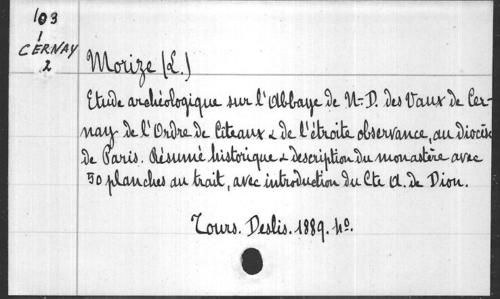 103
1
CERNAY
2
Morize (L.)
Etude archéologique sur l'Abbaye de N.-D. des Vaux de Cer-
nay de l'Ordre de Citeaux & de l'étroite observance, au diocèse
de Paris. Résumé historique & description du monastère avec
50 planches au trait, avec introduction du Cte A. de Dion.
Tours. Deslis. 1889. 4º.